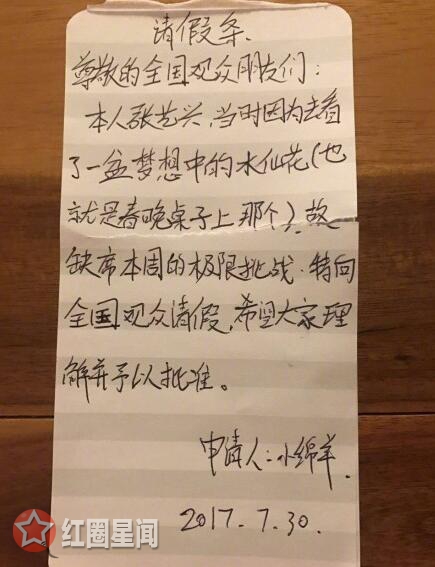 请假条.
尊敬的全国观众朋友们:
本人张艺兴,当时因为去看
了一盆梦想中的水仙花(也
就是春晚桌子上那个).故
缺席本周的极限挑战.特向
全国观众请假,希望大家理
解并予以批准。
申请人:小绵羊.
2017.7.30.
红圈星闻